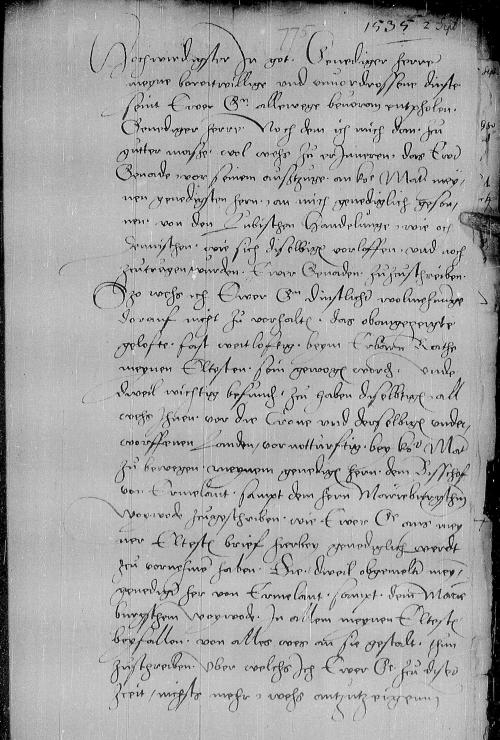 775
1535 2 Sept
Hochwirdigster In got. Genediger herre
meyne bereitwillige und unvordrossene dinste
seint Ewer Gn. allewege bevoran entpholen.
Genediger herre Noch dem ich mich dan zu
gutter masse, wol wehs zu erInneren, das Ewr
Genade, vor seinem aufzuge, an ko Mat mey,
nen genedigsten hern, an mich genediglich geson,
nen, von den Lubischen Handelunge, wie och
Dennischen, wie sich dieselbigen vorloffen, und noch
zutragen wurden, Ewer Genaden, zuzuschreiben.
Szo wehs ich Ewer Gn dinstlicher wolmeynunge
dorauf nicht zu vorhalten, das obangezeigte
gelofte, fast weitloftig, beym Erbarn Rathe
meynen Eltesten, sein gewogen worden, Unde
dweil wichtig befunden, zu haben dieselbigen, all
wehs Ihnen, vor die Crone und derselbigen under,
worffenen Landen, vornottürftig, bey ko Mat
zu bewegen, meynem genedigen hern, dem Bisschof
von Ermelant, sampt dem hern Marieburgschen
Woywode zugeschriben, wie Ewer Ge aus mey
ner Eltesten brief hierbey genediglich werdt
zu vornehme haben. Die, dweil obgemelt mey,
genediger her von Ermelant, sampt dem Marie
burgschem woywode, In allem meynen Eltesten
beyfallen, von alles wes an sie gestalt, thun
zuschreiben, Uber welchs Ich Ewer Ge zu diser
zeit, nichts mehr, wehs antzutzeigenn